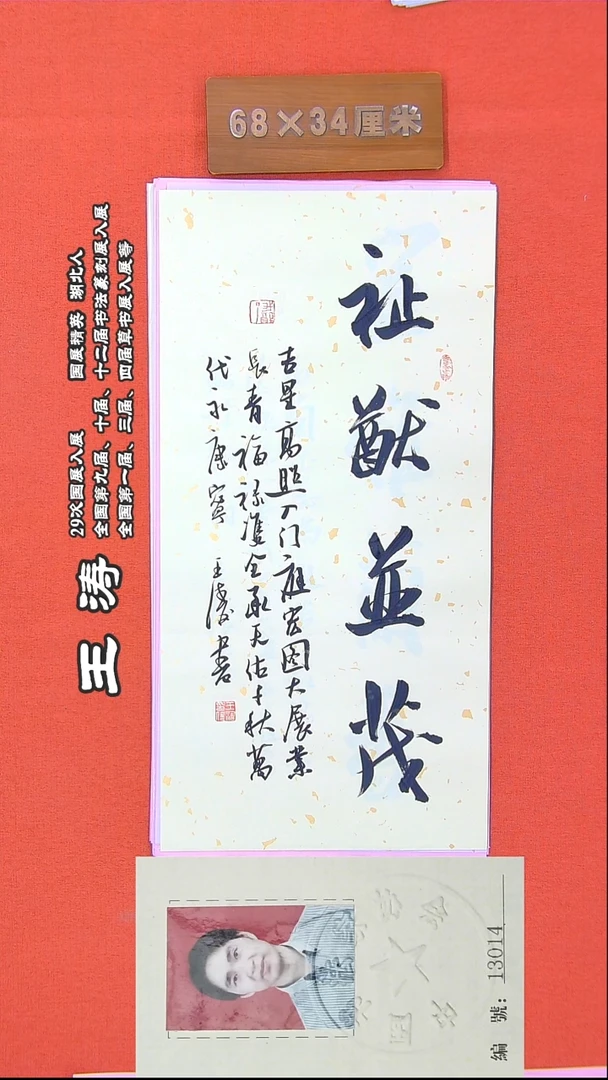 68×34厘米
祉猷並茂
吉星高照入门庭宏图大展業
長青福禄雙全承天佑千秋萬
代永康寧 王涛書
王涛
29次国展入展 国展精英 湖北人
全国第九届、十届、十二届书法篆刻展入展
全国第一届、三届、四届草书展入展等
編 號：13014